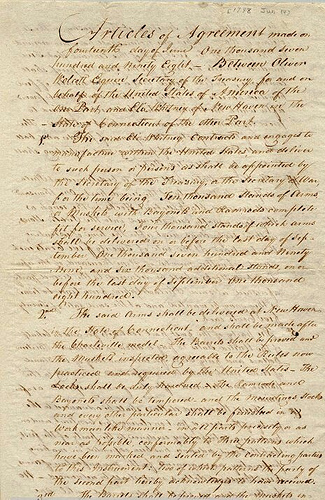 [1798 Jun 14]
Articles of Agreement made on
fourteenth day of June One thousand seven
hundred and Ninety Eight — Between Oliver
Wolcott Esquire Secretary of the Treasury for and on
behalf of the United States of America of the
one Part, and Eli Whitney of New Haven in the
State of Connecticut of the other Part.
1st The said Eli Whitney Contracts and engages to
manufacture within the United States and deliver
to such person or persons as shall be appointed by
the Secretary of the Treasury, or the Secretary of War,
for the time being Ten thousand Stands of Arms
or Muskets with Bayonets and Ramrods complete
fit for service. Four thousand stands of which arms
shall be delivered on or before the last day of Sep-
tember One thousand seven hundred and Ninety
Nine, and Six thousand additional stands on or
before the last day of September One thousand
eight hundred.
2nd The said Arms shall be delivered at New Haven
in the State of Connecticut, and shall be made after
the Charleville model. The Barrels shall be proved and
the Muskets inspected agreeable to the Rules now
practiced and required by the United States. The
Locks shall be The Ramrods and
Bayonets shall be tempered and the Mountings Stocks
and every other shall be finished in a
workmanlike manner in all parts precisely or as
near as possible conformable to three patterns which
have been marked and sealed by the contracting parties
to this Instrument: two of which patterns the party of
the second part hereby acknowledges to have received.
3rd The United States